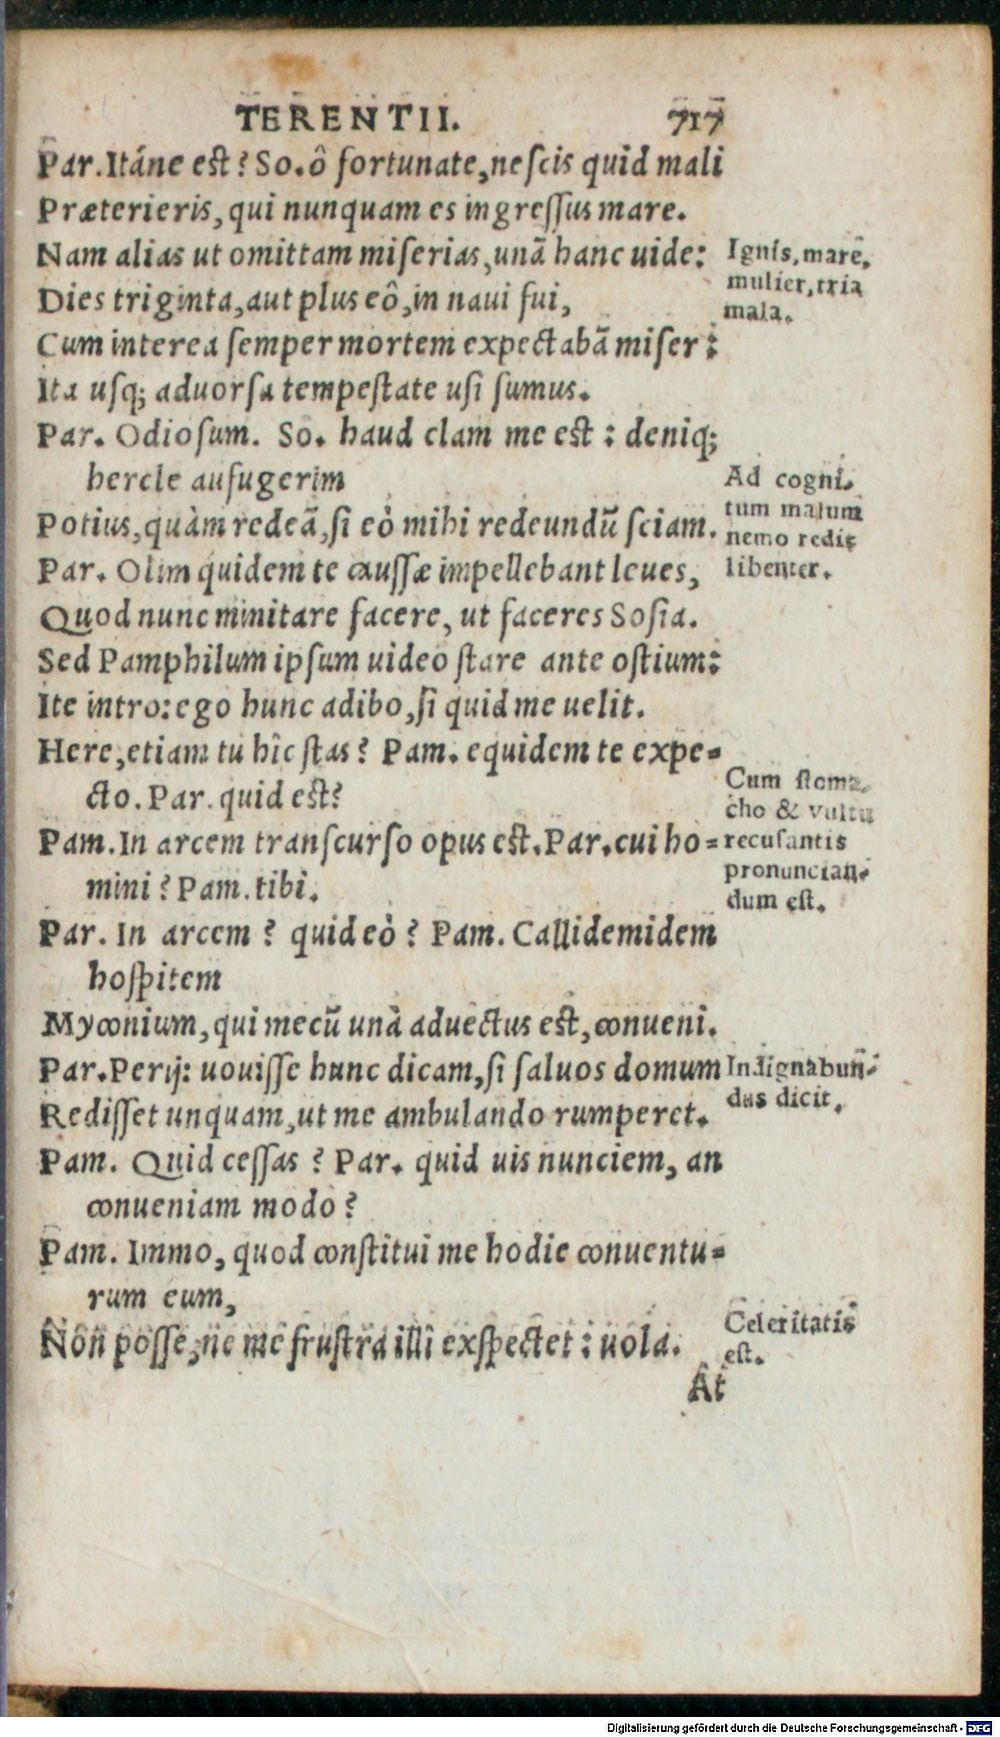 TERENTII. 717
Par. Itáne est? So. ô fortunate, nescis quid mali
Præterieris, qui nunquam es ingressus mare.
Nam alias ut omittam miserias, unā hanc uide:
Dies triginta, aut plus eô, in naui fui,
Cum interea semper mortem expectabā miser:
Ita usq; aduorsa tempestate usi sumus.
Par. Odiosum. So. haud clam me est: deniq;
hercle aufugerim
Potius, quàm redeā, si eò mihi redeundū sciam.
Par. Olim quidem te caussæ impellebant leues,
Quod nunc minitare facere, ut faceres Sosia.
Sed Pamphilum ipsum uideo stare ante ostium:
Ite intro: ego hunc adibo, si quid me uelit.
Here, etiam tu hîc stas? Pam. equidem te expe-
cto. Par. quid est?
Pam. In arcem transcurso opus est. Par. cui ho-
mini? Pam. tibi.
Par. In arcem? quid eò? Pam. Callidemidem
hospitem
Myconium, qui mecū unà aduectus est, conueni.
Par. Perij: uouisse hunc dicam, si saluos domum
Redisset unquam, ut me ambulando rumperet.
Pam. Quid cessas? Par. quid uis nunciem, an
conueniam modò?
Pam. Immo, quod constitui me hodie conuentu-
rum eum,
Non posse, ne me frustra illi exspectet: uola.
At
Ignis, mare,
mulier, tria
mala.
Ad cogni-
tum malum
nemo redit
libenter.
Cum stoma-
cho & vultu
recusantis
pronuncian-
dum est.
Indignabun-
dus dicit.
Celeritatis
est.
Digitalisierung gefördert durch die Deutsche Forschungsgemeinschaft - DFG